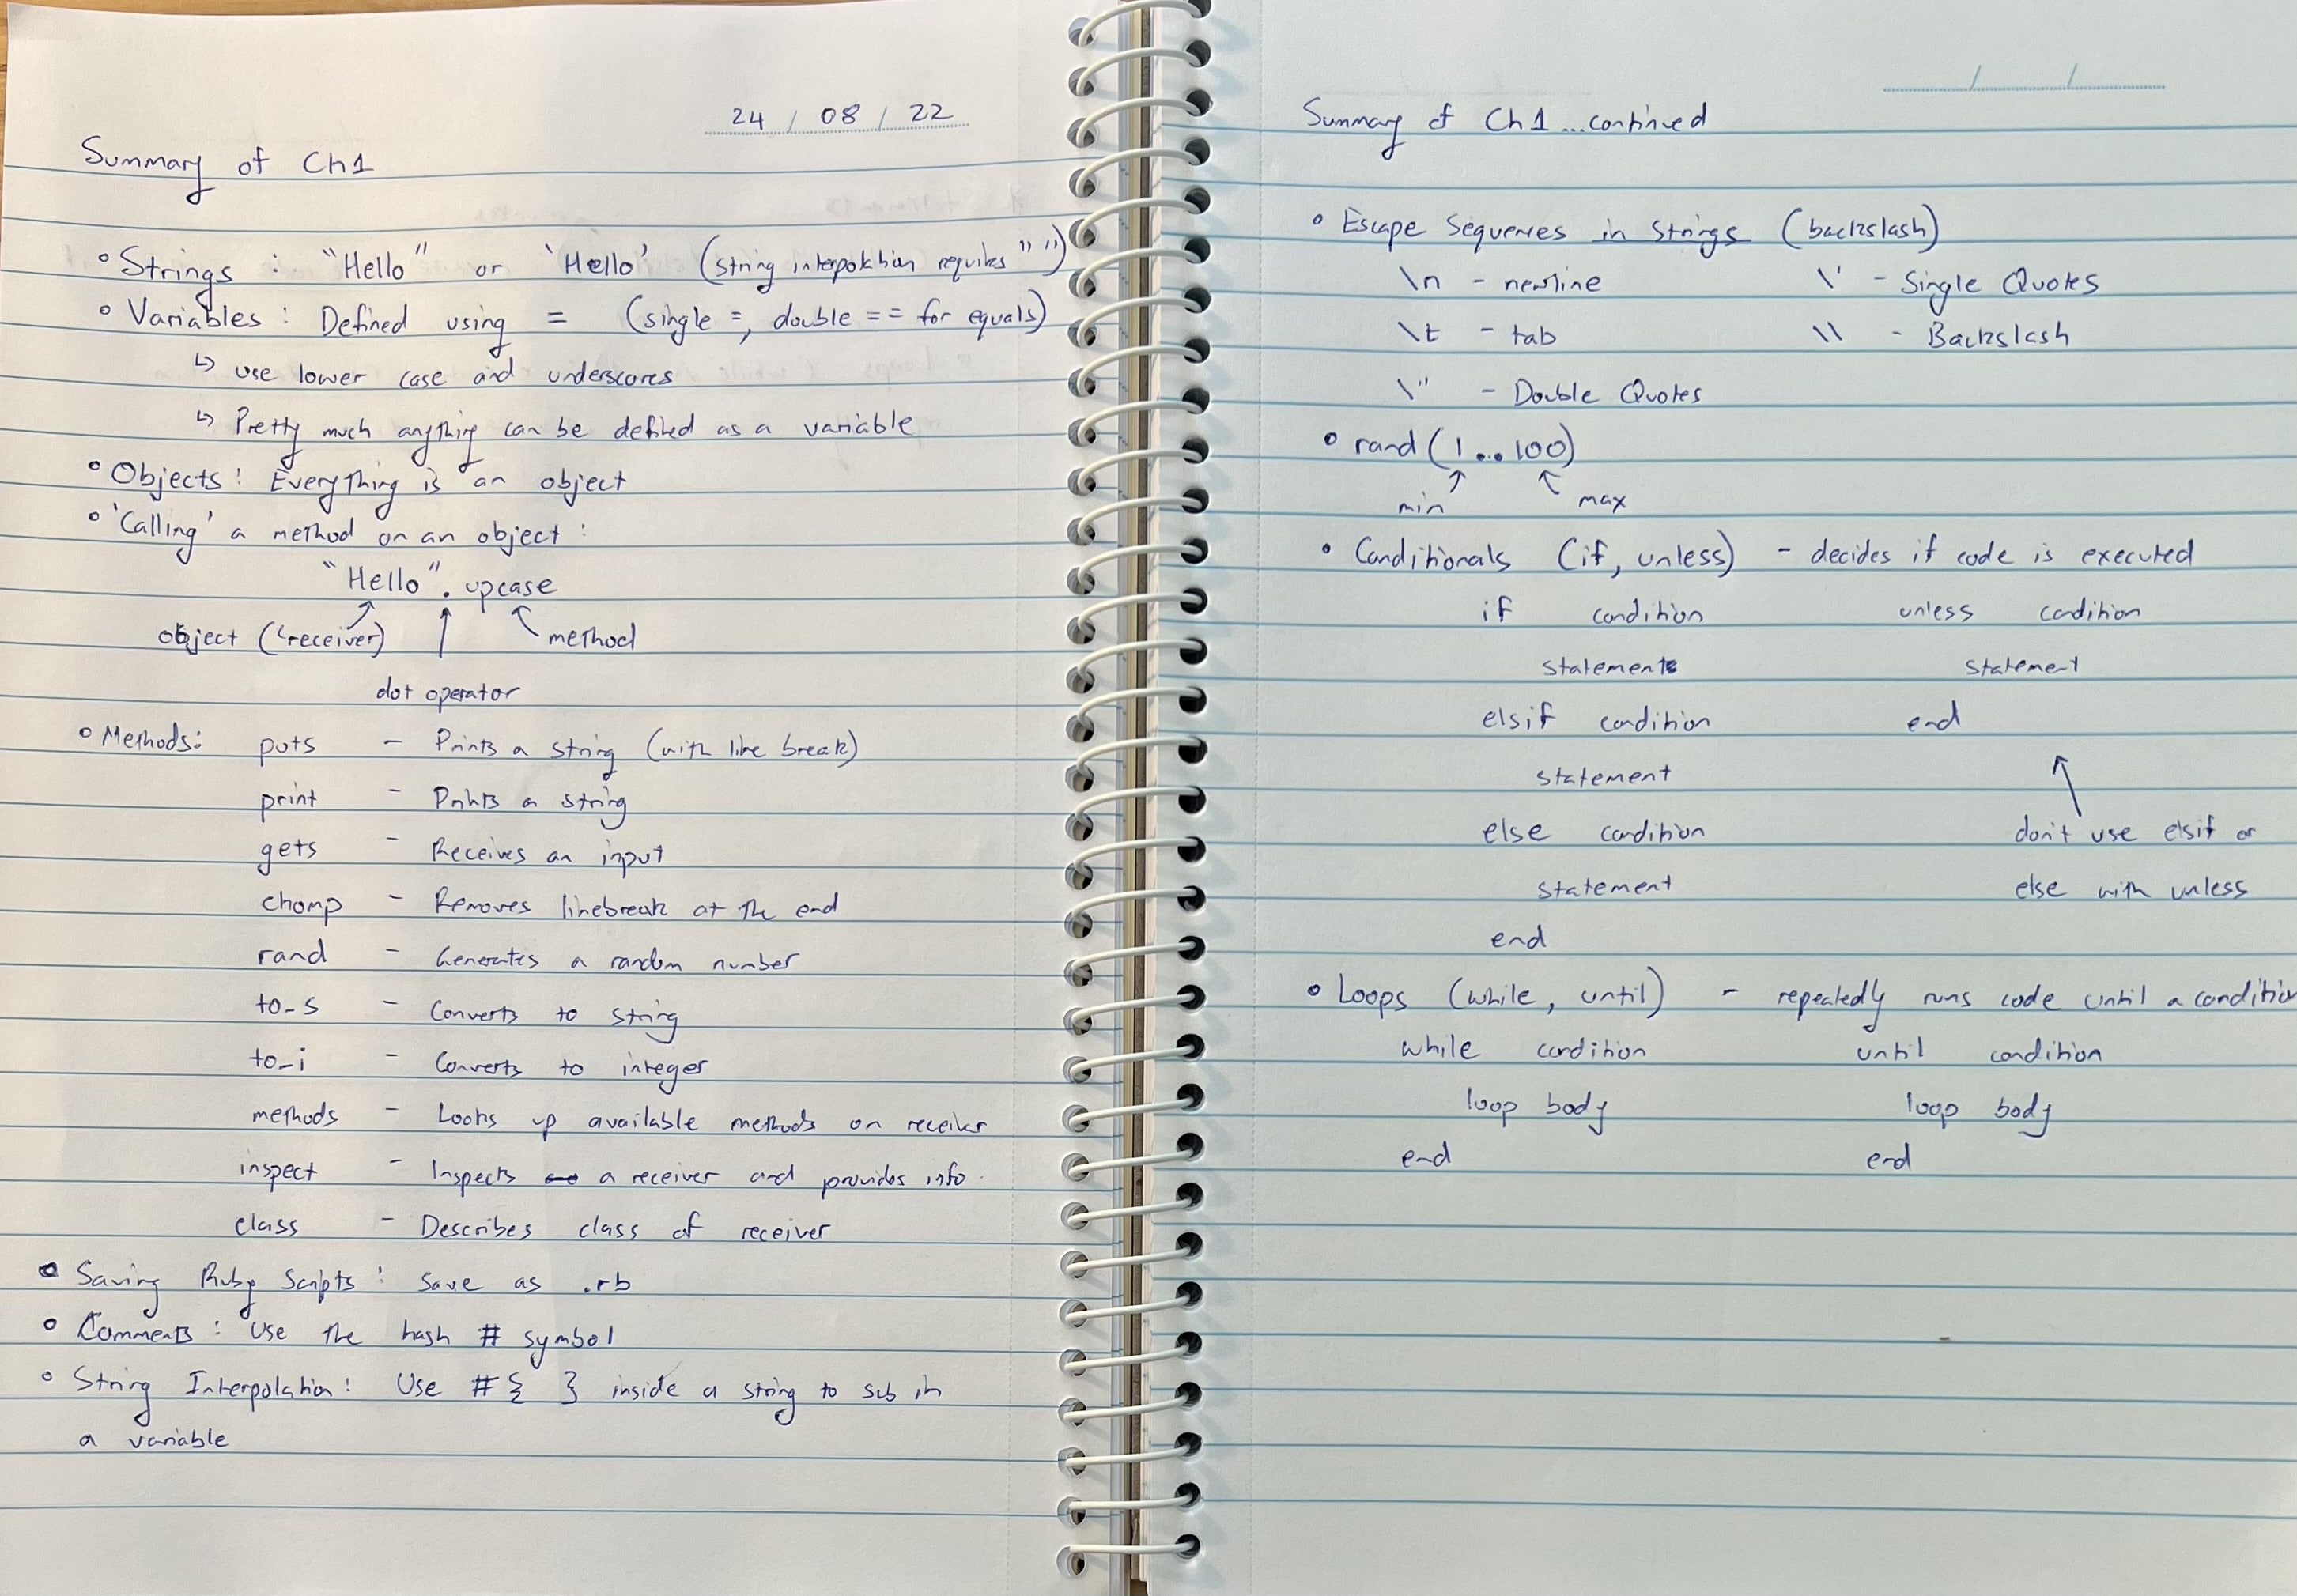 24 / 08 / 22
Summary of Ch1
• Strings : "Hello" or 'Hello' (string interpolation requires " ")
• Variables : Defined using = (single =, double == for equals)
↳ use lower case and underscores
↳ Pretty much anything can be defined as a variable
• Objects : Everything is an object
• 'Calling' a method on an object :
"Hello" . upcase
object ('receiver) method
dot operator
• Methods: puts - Prints a string (with line break)
print - Prints a string
gets - Receives an input
chomp - Removes linebreak at the end
rand - Generates a random number
to_s - Converts to string
to_i - Converts to integer
methods - Looks up available methods on receiver
inspect - Inspects a receiver and provides info.
class - Describes class of receiver
• Saving Ruby Scripts : Save as .rb
• Comments : Use the hash # symbol
• String Interpolation : Use #{ } inside a string to sub in
a variable
/ /
Summary of Ch1 ...continued
• Escape Sequences in Strings (backslash)
\n - newline \' - Single Quotes
\t - tab \\ - Backslash
\" - Double Quotes
• rand (1...100)
min max
• Conditionals (if, unless) - decides if code is executed
if condition unless condition
statements statement
elsif condition end
statement
else condition don't use elsif or
statement else with unless
end
• Loops (while, until) - repeatedly runs code until a condition
while condition until condition
loop body loop body
end end